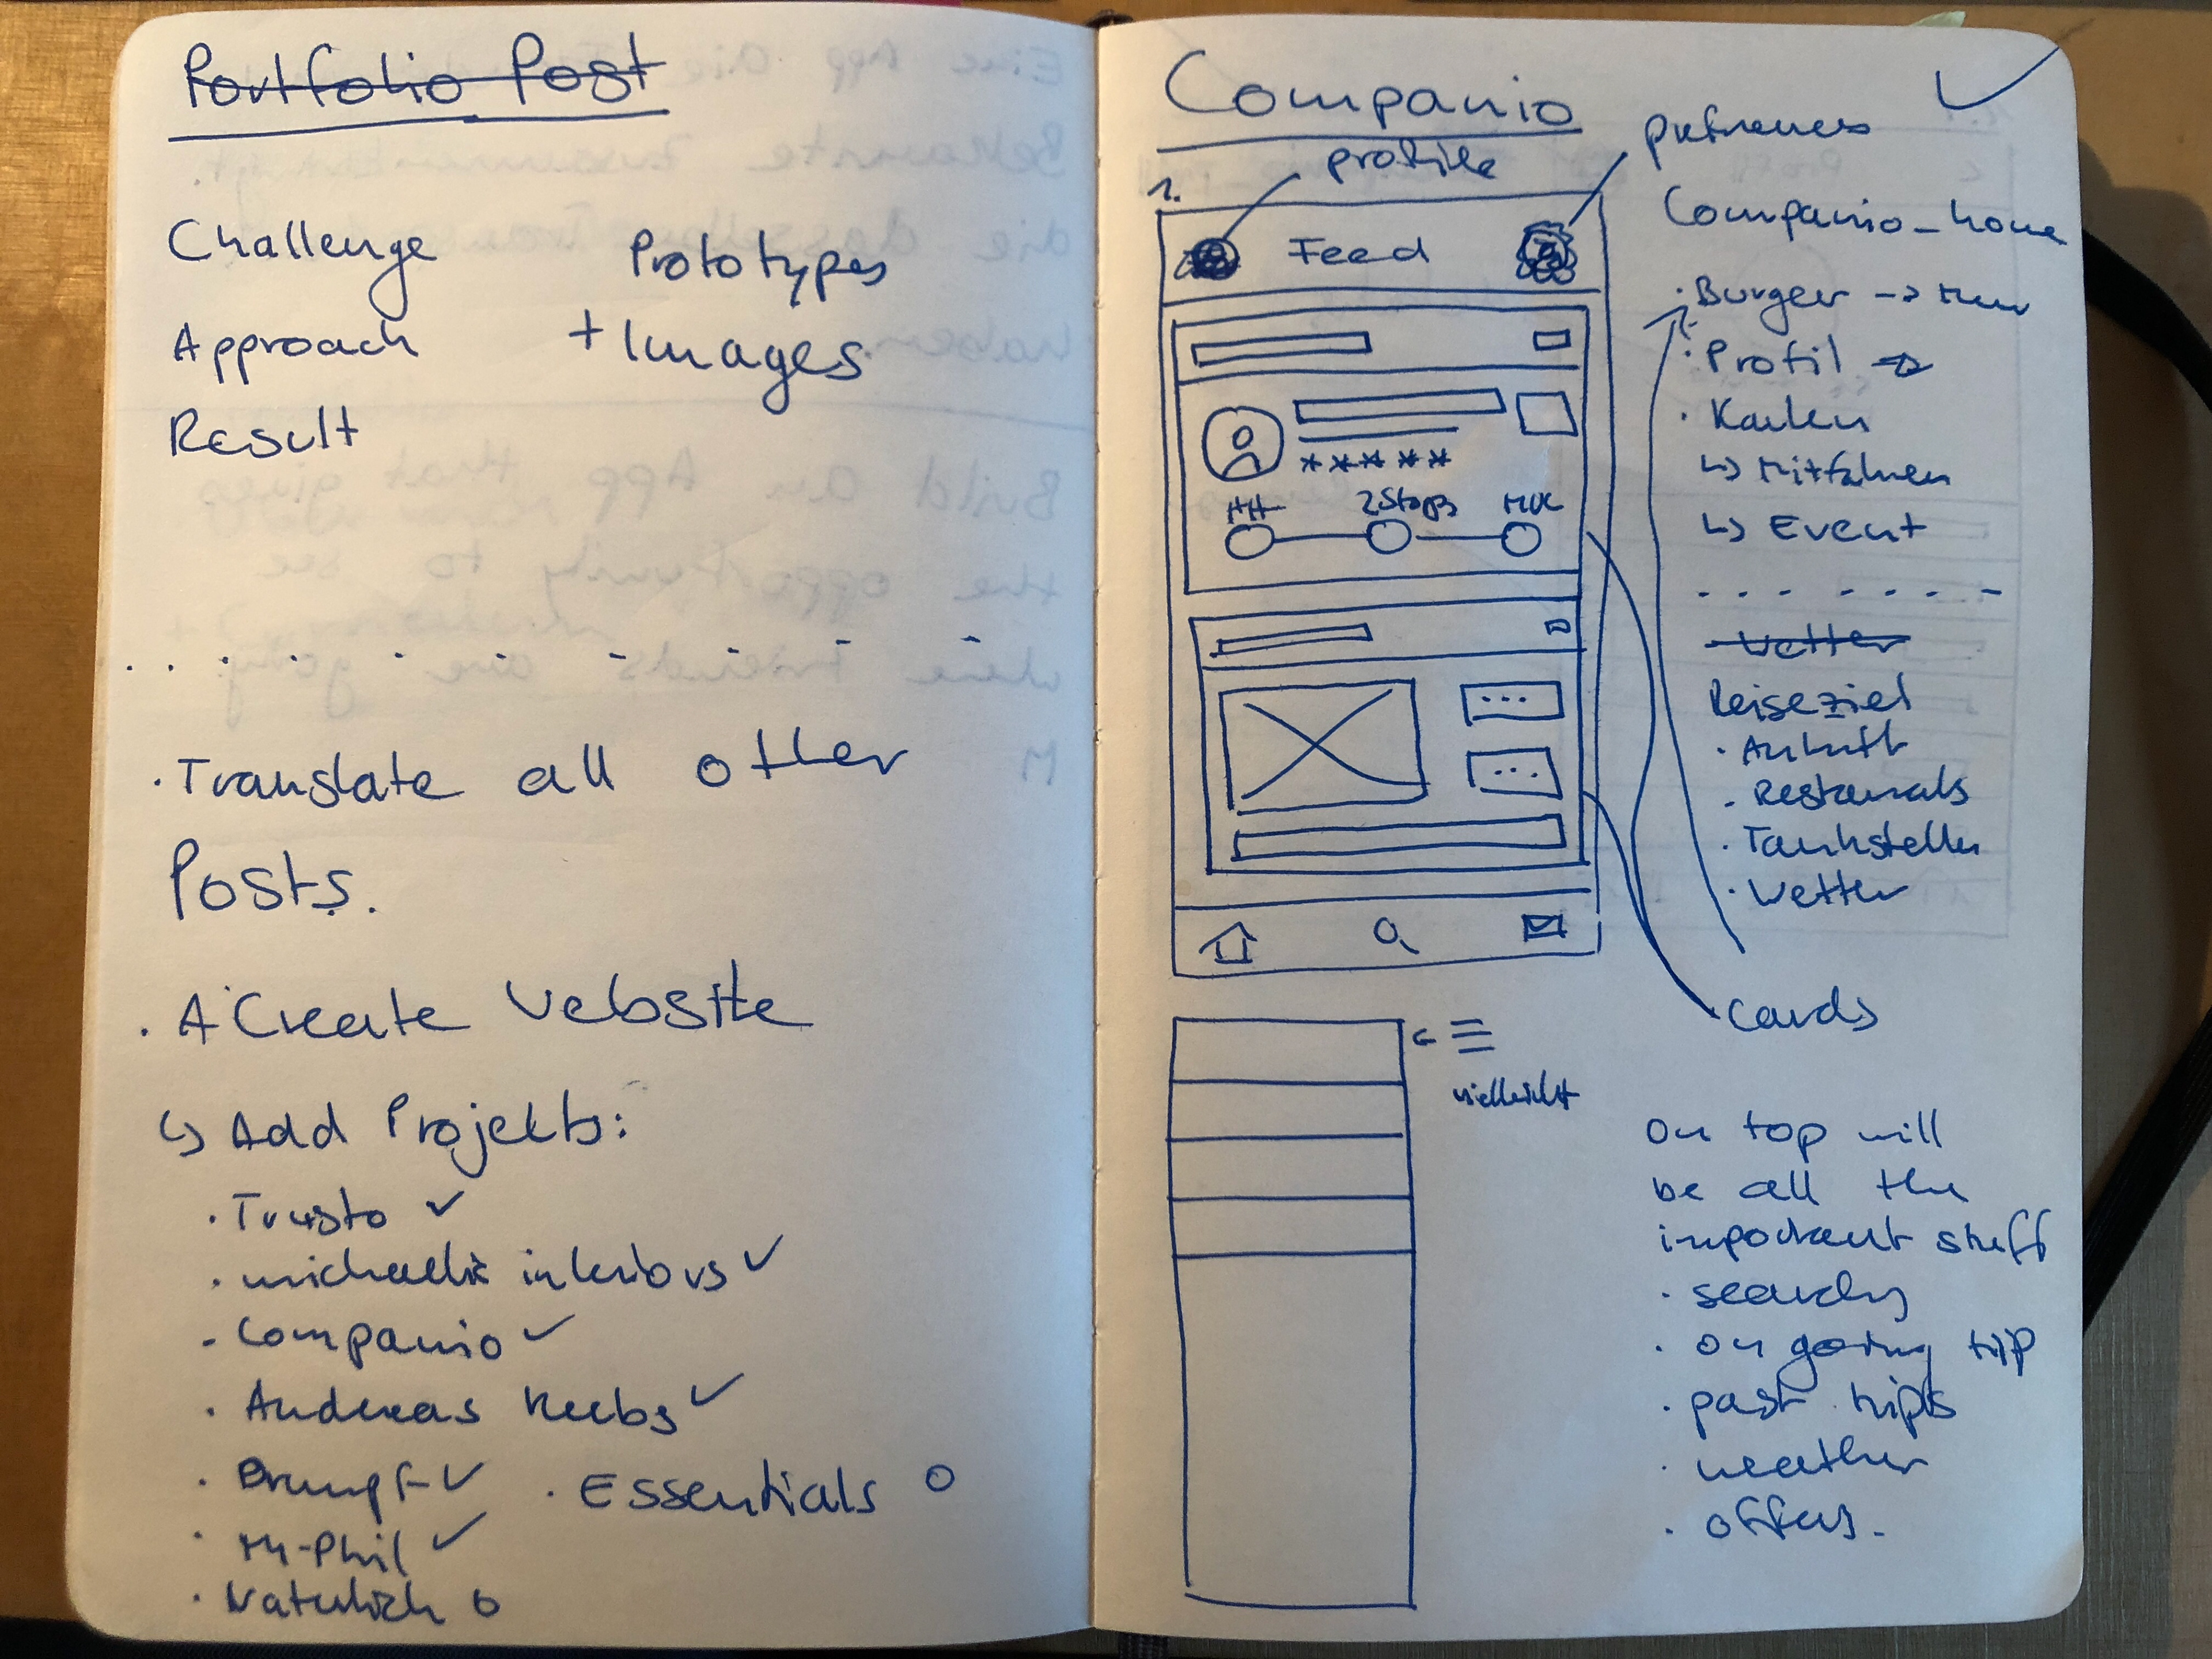 Portfolio Post
Challenge
Approach
Result
Prototypes
+ Images.
· Translate all other
Posts.
· Create Website
↳ Add Projekts:
· Trusto ✓
· interiors ✓
· Companio ✓
· Andreas ✓
✓
· Essentials o
· M-Phil ✓
· Natürlich o
Companio ✓
profile
1.
Feed
HH 2 Stops MUC
Companio_home
· Burger ->
· Profil ->
· Karten
↳ Mitfahren
↳ Event
Wetter
Reiseziel
· Ankunft
· Restaurants
· Tankstellen
· Wetter
cards
vielleicht
On top will
be all the
important stuff
· search
· on going trip
· past trips
· weather
· offers.